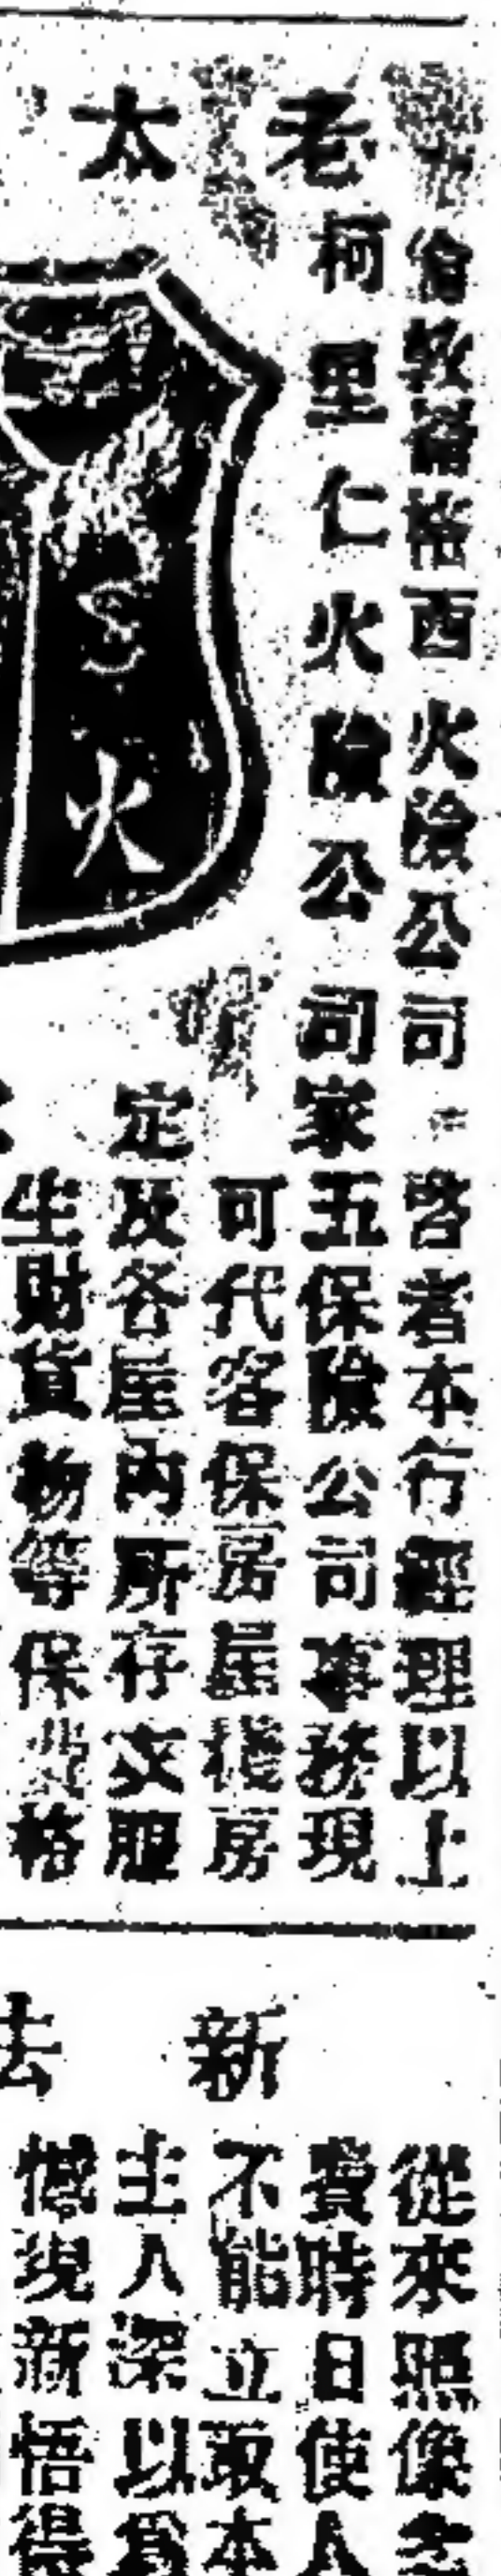 老太
倫敦
西火險公司
柯里仁火險公司
火
啓者本行經理以上
家五保險公司事務現
可代客保房屋棧房
定及各屋內所存衣服
生財貨物等保費格
新法
從來照像多
費時日使人
不能立取本
主人深以爲
憾現新悟得